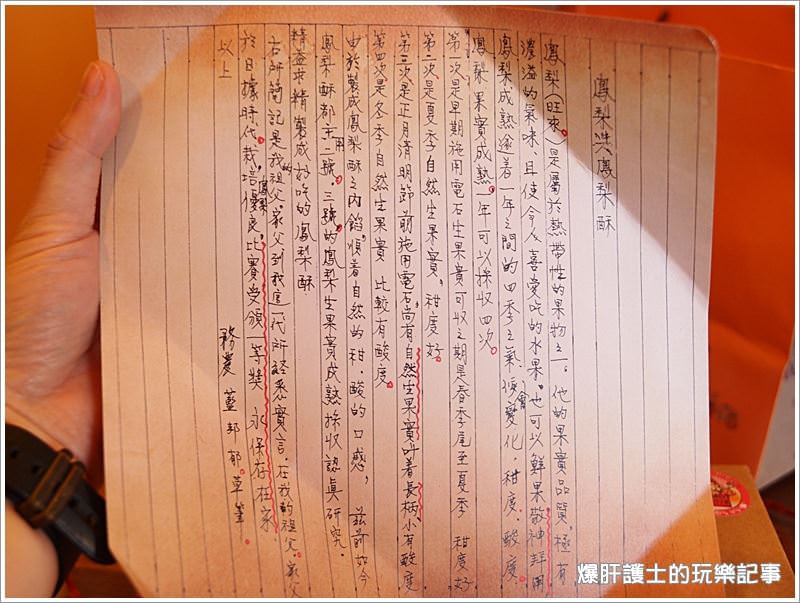 鳳梨洪鳳梨酥
鳳梨(旺來)是屬於熱帶性的果物之一。他的果實品質,極有
濃溢的氣味,且使令人喜愛吃的水果。也可以鮮果敬神拜用
鳳梨成熟逐着一年之間的四季之氣候會變化,甜度,酸度。
鳳梨果實成熟一年可以採收四次。
第一次是早期施用電石生果實可收之期是春季尾至夏季 甜度好
第二次是夏季自然生果實,甜度好。
第三次是正月清明節前施用電石尚有自然生果實叫着長柄,小有酸度
第四次是冬季自然生果實 比較有酸度。
由於製成鳳梨酥之內餡,順着自然的甜,酸的口感, 茲前如今
鳳梨酥都主用二號,三號的鳳梨生果實成熟採收認真研究。
精益求精製成好吃的鳳梨酥
右所簡記是我的祖父。家父到我這一代所經悉實言,在我的祖父。家父
於日據時代,栽培鳳梨優良,比賽受頒一等獎 永保存在家
以上
務農 藍邦郁。草筆
爆肝護士的玩樂記事